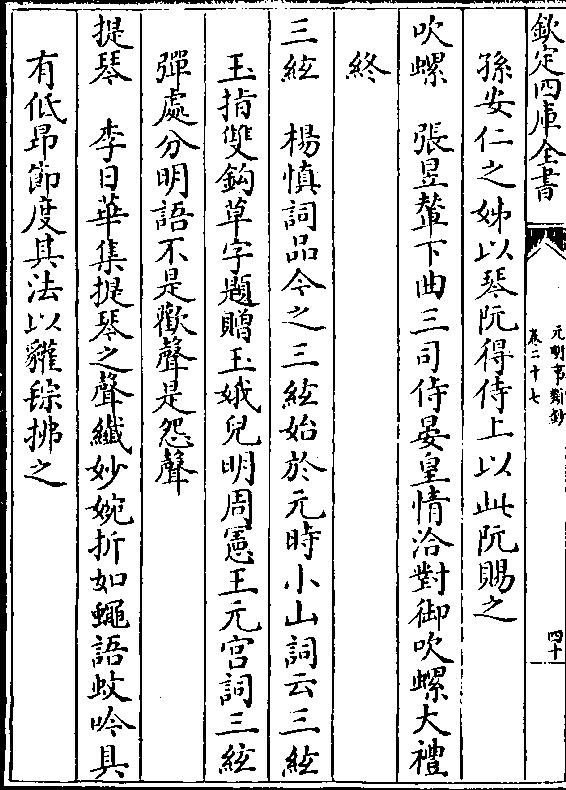 欽定四庫全書
元明事類鈔
卷二十七
四十
孫安仁之姊以琴阮得侍上以此阮賜之
吹螺　張昱輦下曲三司侍晏皇情洽對御吹螺大禮
終
三絃　楊慎詞品今之三絃始於元時小山詞云三絃
玉指雙鈎草字題贈玉娥兒明周憲王元宮詞三絃
彈處分明語不是歡聲是怨聲
提琴　李日華集提琴之聲纖妙婉折如蠅語蚊吟具
有低昻節度其法以貛䯼拂之